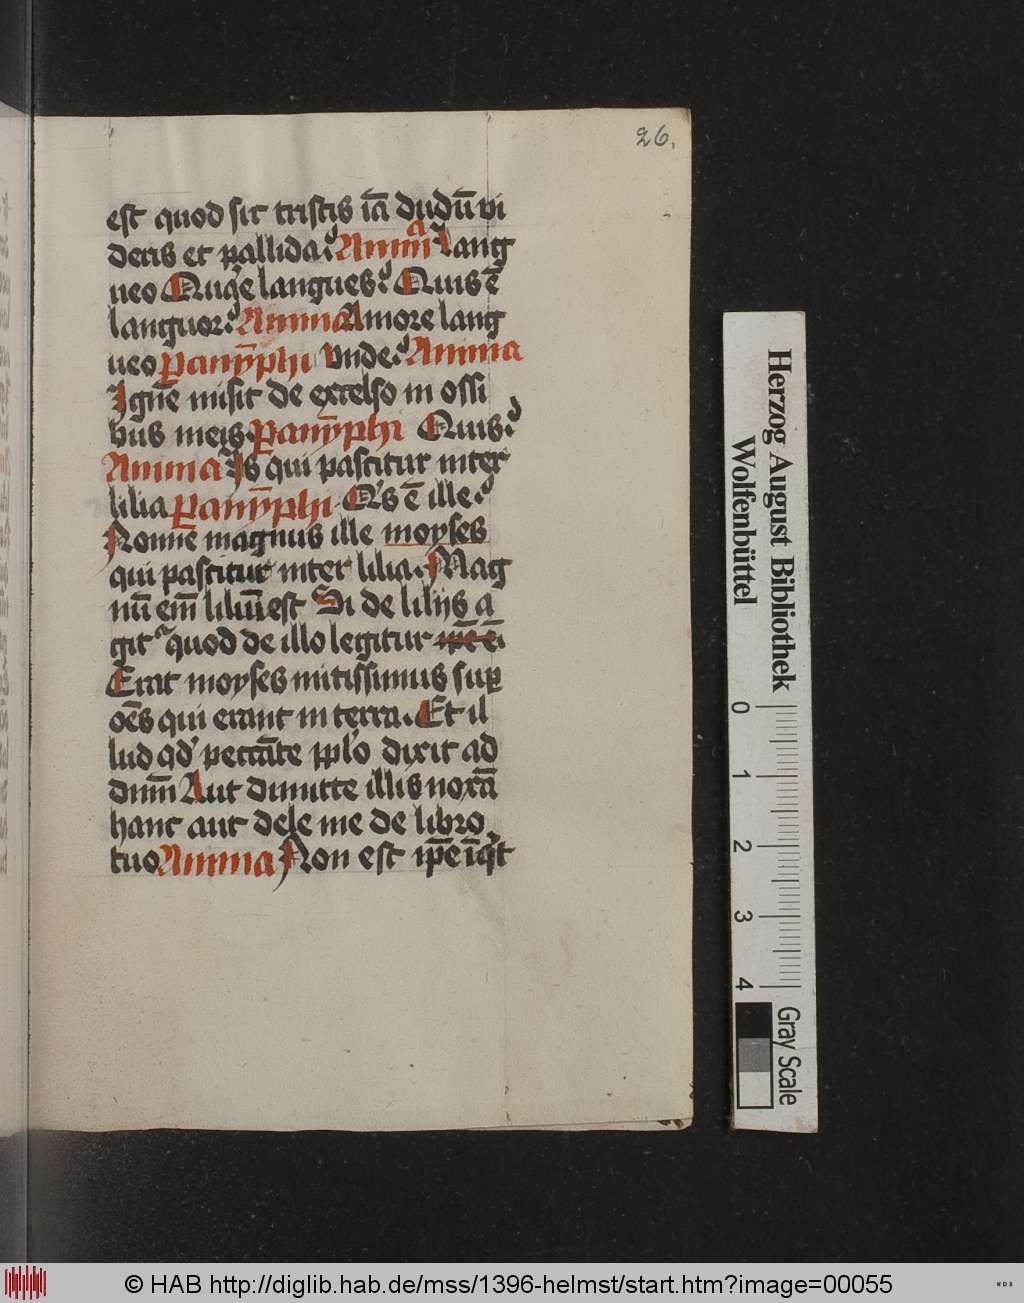 26.
est quod sit tristis iā dudū vi
deris et pallida? Anima Lang
ueo Quare langues? Quis ē
languor? Anima Amore lang
ueo Paranȳphi vnde? Anima
Ignē misit de excelso in ossi
bus meis. Paranȳphi Quis?
Anima Is qui pascitur inter
lilia Paranȳphi Qis ē ille?
Nonne magnus ille moyses
qui pascitur inter lilia. Mag
nū em̄ liliū est Si de lilijs a
git quod de illo legitur ip̄e ē
Erat moyses mitissimus sup
oēs qui erant in terra. Et il
lud qd' peccāte pplo dixit ad
dnm̄ Aut dimitte illis noxā
hanc aut dele me de libro
tuo Anima Non est ip̄e īqt
Herzog August Bibliothek
Wolfenbüttel
0 1 2 3 4
Gray Scale
© HAB http://diglib.hab.de/mss/1396-helmst/start.htm?image=00055
WDB